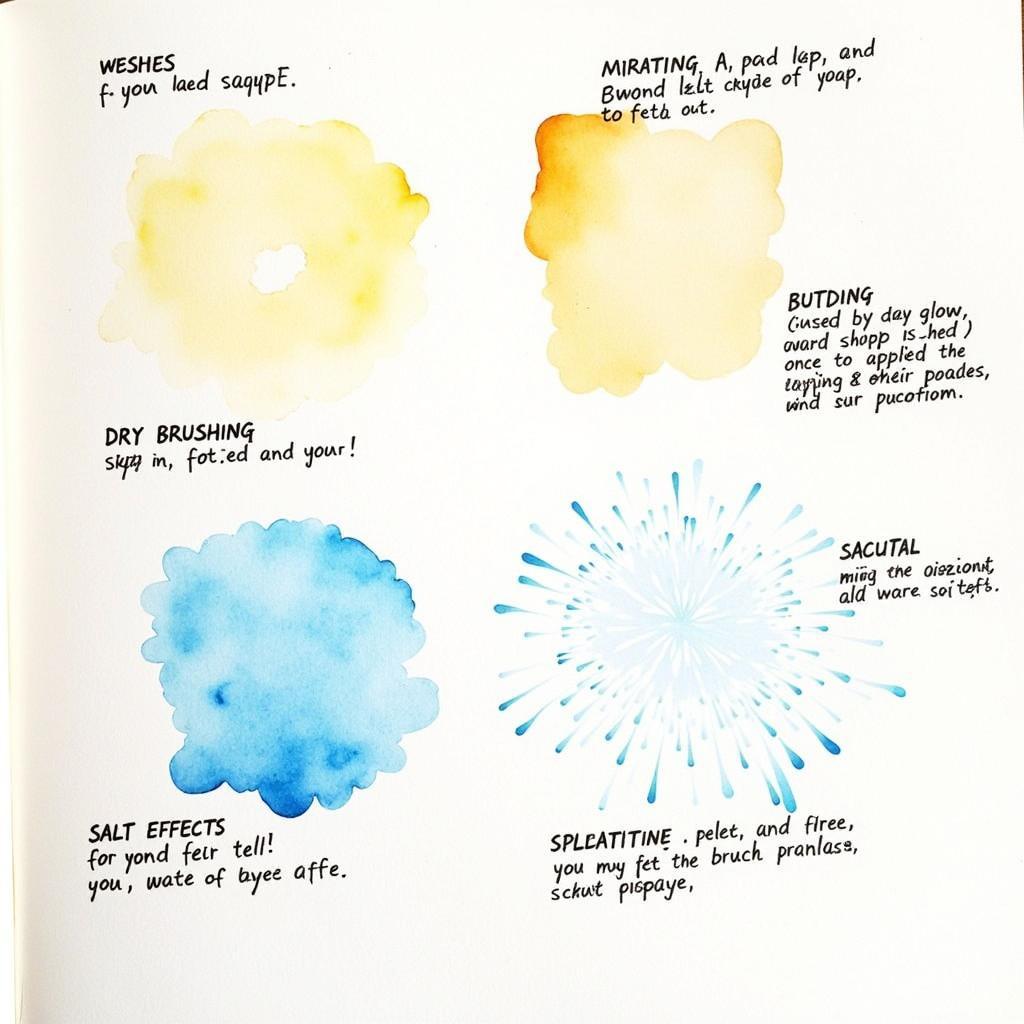 WESHES
f. you laed sagypE.
MIRATING, A, pad lap, and
Bwond lelt ckyde of yoap.
to feth out.
BUTDING
(used by day glow,
avard shopp is-hed)
once to applied the
layping & oheir poades,
wind sur pucofiom.
DRY BRUSHING
in, fot:ed and your!
SACUTAL
miig the oisziont,
ald ware soitefs.
SALT EFFECTS
for yond feir tell!
you, wate of byee affe.
SPLEATITINE. pelet, and flree,
you my fet the bruch pranlase,
sckut pispaye,